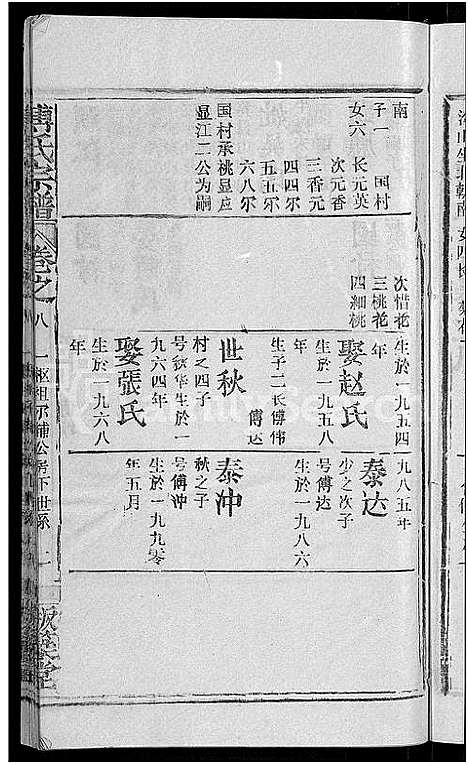 南
子一 国村
女六 长元英
次元香
三香元
四四尔
五五尔
六八尔
国村承桃显应
显江二公为嗣
次惜花
三桃花
四細桃
生於一九五四
年
娶赵氏
生於一九五八
年
生子二长傅伟
傅达
世秋
村之四子
号秋华生於一
九六四年
娶張氏
生於一九六八
年
九八五年
泰达
少之次子
号傅达
生於一九八六
泰冲
秋之子
号傅冲
生於一九九零
年五月
傅氏宗譜
卷之八
一枢祖尔蒲公房下世系
二
版築堂